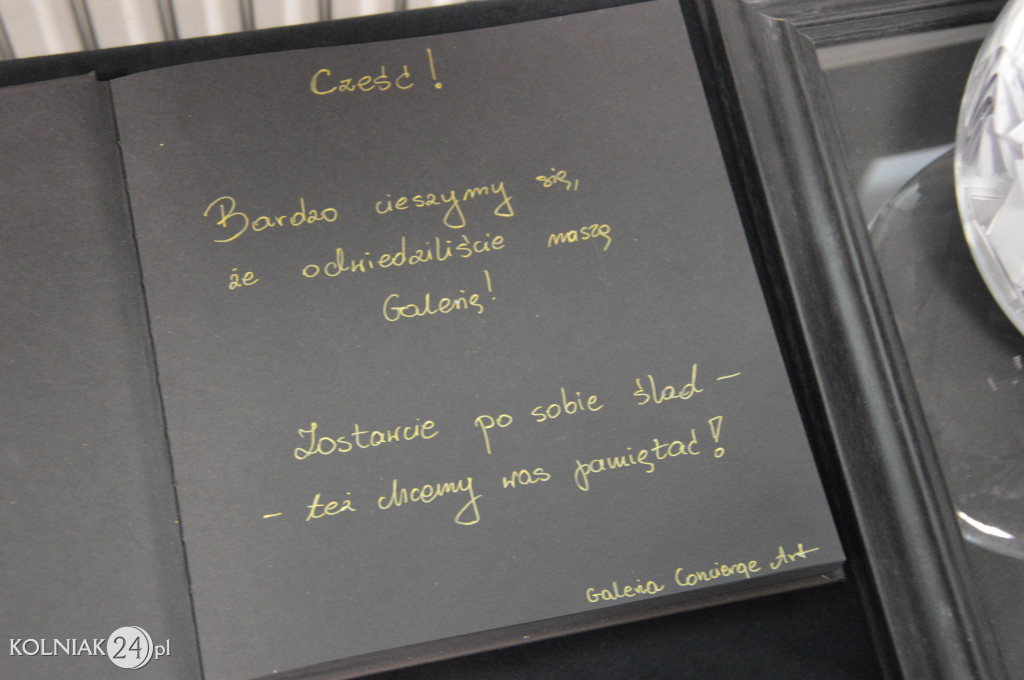 Cześć!
Bardzo cieszymy się,
że odwiedziliście naszą
Galerię!
Zostawcie po sobie ślad –
– też chcemy was pamiętać!
Galeria Concierge Art
KOLNIAK24.pl